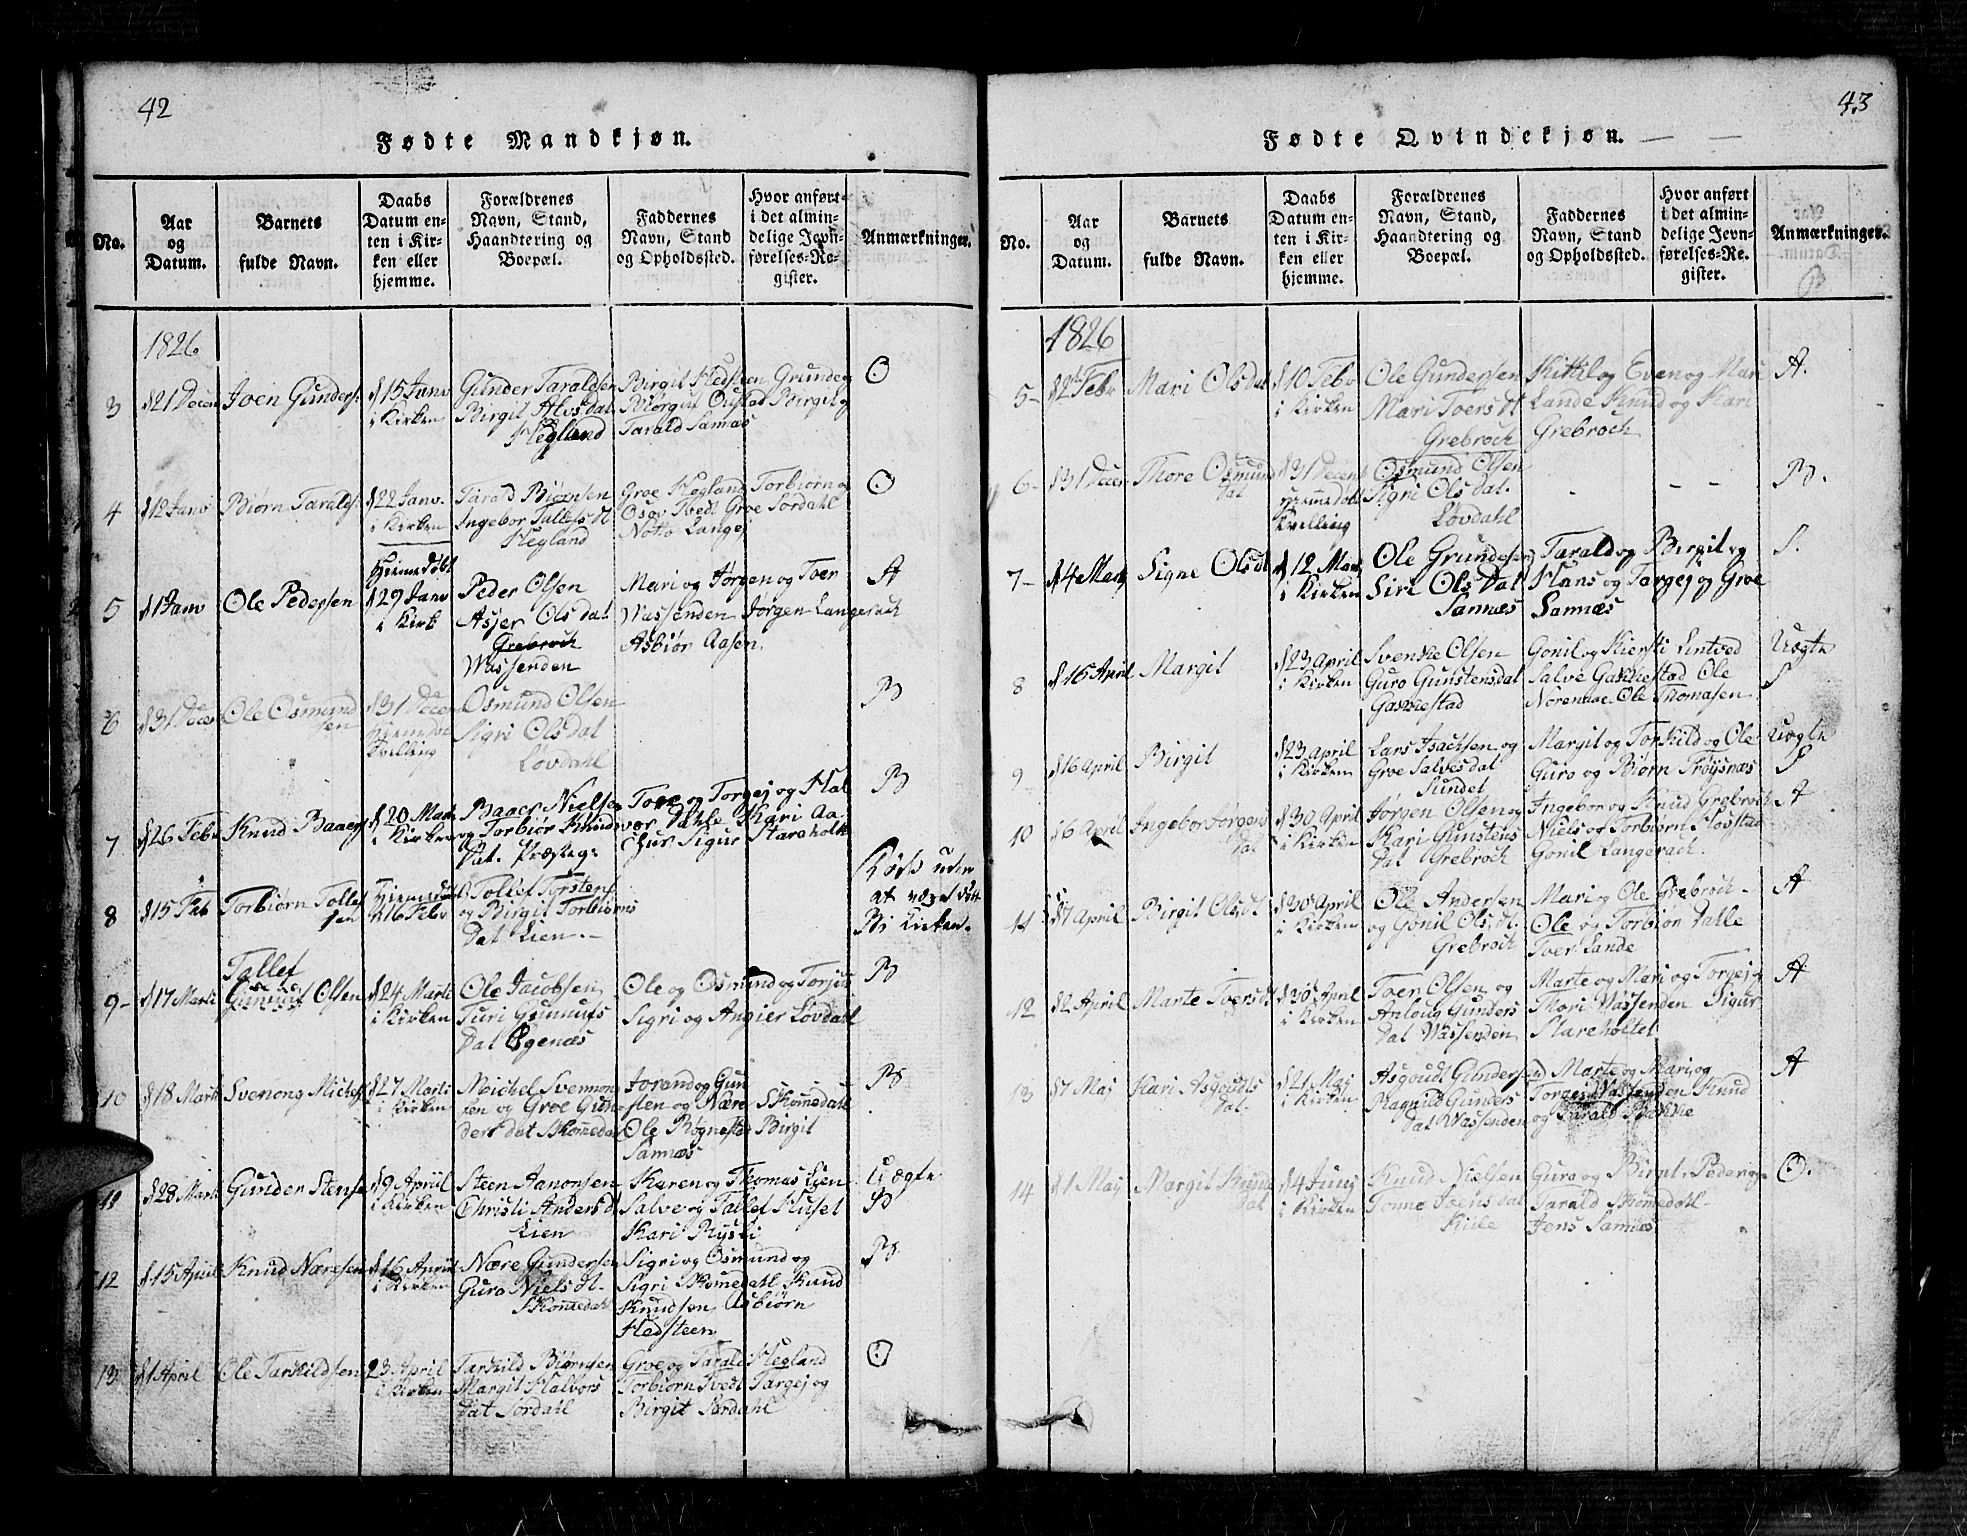 42
Fødte Mandkjøn.
No.
Aar
og
Datum.
Barnets
fulde Navn.
Daabs
Datum en-
ten i Kir-
ken eller
hjemme.
Forældrenes
Navn, Stand,
Haandtering og
Boepæl.
Faddernes
Navn, Stand
og Opholdssted.
Hvor anført
i det almin-
delige Jevn-
førelses-Re-
gister.
Anmærkninger.
1826
3
d 21 Decem
Joen Gunders.
d 15 Janv
i Kirken
Gunder Taraldsen
Birgit Alvs dat
Hegland
Birgit Hedsteen Grundeg
Biørguf Oustad Birgit og
Tarald Samæs
O
4
d 12 Janv
Biørn Taralds.
d 22 Janv.
i Kirken
Tarald Biørnsen
Ingebor Tallefs dt
Hegland
Groe Hegland Torbiørn og
Osov Tvedt Groe Sordahl
Noto Langej
O
5
d 1 Janv
Ole Pedersen
Hiemedøbt
d 29 Janv
i Kirk
Peder Olsen
Asjer Ols dat
Grebroch
Wassenden
Mari og Jorgen og Toer
Wassenden Jorgen Langerach
Asbiør Aasen
A
6
d 31 Decem
Ole Osmund
sen
d 31 Decem
Hiemedøbt
Tvilling
Osmund Olsen
Sigri Ols dat
Løvdahl
B
7
d 26 Febr
Knud Baaers
d 20 Mart
i Kirken
Baaer Nielsen
og Torbiør Knud
Dat. Præsteg:
Toer og Torgej og Hal
vor Dahle Kari Aa
Sigur Stareholt
B
8
d 15 Feb
Torbiørn Tollef
sen
Hiemedøbt
d 16 Febr
Tollef Torstens
og Birgit Torbiørns
Dat Lien.
Døde uden
at være
B i Kirken.
9
d 17 Marti
Tallef
Gunnuf Olsen
d 24 Marti
i Kirken
Ole Jacobsen
Turi Gunnufs
Dat Øgenæs
Ole og Osmund og Torjus
Sigri og Angier Løvdahl
B
10
d 18 Marti
Svenong Michels
d 27 Marti
i Kirken
Michel Svennong
sen og Groe Gun
ders dat Skomedal
Jorand og Gun
sten og Nære Skomedahl
Ole Rognestad Birgit
Samæs
B
11
d 28 Marti
Gunder Stens
d 9 Apriil
i Kirken
Steen Aanonsen
Christi Anders d
Lien
Karen og Thomas Lien
Salve og Tallef Huset
Kari Rysti
Uægte
B
12
d 15 Apiil
Knud Næresen
d 16 Apriil
i Kirken
Nære Gundersen
Guro Niels dt.
Skomedahl
Sigri og Osmund og
Sigri Skomedahl Knud
Knudsen Asbiørn
Hedsteen
B
13
d 1 April
Ole Tarkildsen
23 April
i Kirken
Tarkild Biørnsen
Margit Halvors
dat Sordahl
Groe og Tarald Hegland
Torbiørn Tvedt Targej og
Birgit Sordahl
O
43
Fødte Qvindekjøn.
No.
Aar
og
Datum.
Barnets
fulde Navn.
Daabs
Datum en-
ten i Kir-
ken eller
hjemme.
Forældrenes
Navn, Stand,
Haandtering og
Boepæl.
Faddernes
Navn, Stand
og Opholdssted.
Hvor anført
i det almin-
delige Jevn-
førelses-Re-
gister.
Anmærkninger.
1826
5
d 2 Febr
Mari Olsdat
d 10 Febr
i Kirken
Ole Gundersen
Mari Toers dt
Grebroch
Kittil og Even og Mari
Lande Knud og Kari
Grebroch
A.
6
d 31 Decem
Thore Osmund
Dat
d 31 Decem
Hjemmedøbt
Tvilling
Osmund Olsen
Sigri Ols dat.
Løvdahl
B.
7
d 4 Marti
Signe Olsdt
d 12 Mars
i Kirken
Ole Grundesen
Siri Ols Dat
Samnæs
Tarald og Birgit og
Hans og Targej og Groe
Samnæs
S.
8
d 15 April
Margit
d 23 April
i Kirken
Svenke Olsen
Guro Gunstensdat
Gakkestad
Gonil og Kiersti Lintved
Salve Gakkestad Ole
Ole Thomasen
Uægte
S
9
d 16 April
Birgit
d 23 April
i Kirken
Lars Isachsen og
Groe Salvesdat
Sundet
Margit og Torkild og Ole
Guro og Biørn Frøysnæs
Uægte
S
10
d 6 April
Ingebor Jørgens
Dat
d 30 April
i Kirken
Jørgen Olsen og
Kari Gunstens
Dat Grebroch
Ingebor og Knud Grebroch
Niels og Torbiørn Flostad
Gonil Langerach.
A
11
d 7 April
Birgit Olsdt
d 30 April
i Kirken
Ole Andersen
og Gonil Ols. dt.
Grebroch
Mari og Ole Grebroch
Ole og Torbiør Dahle
Toer Lande
A
12
d 2 April
Marte Toersdt
d 30 April
i Kirken
Toer Olsen og
Anlaug Gunders
Dat Wassenden
Marte og Mari og Torgej og
Thori Wassenden Sigur
Stareholtet
A
13
d 7 Maj
Kari Asgoudts
Dat
d 21 Maj
i Kirken
Asgoudt Gundersen
Ragnild Gunders
Dat Wassenden
Marte og Mari og
Torges Wassenden Knud
og Tarald Bakke
A
14
d 1 Maj
Margit Knud
Dat
d 4 Junj
i Kirken
Knud Nielsen
Tonne Joens dat
Kiile
Guro og Birgit. Peder og
Tarald Skomedahl
Jens Samnæs
O.